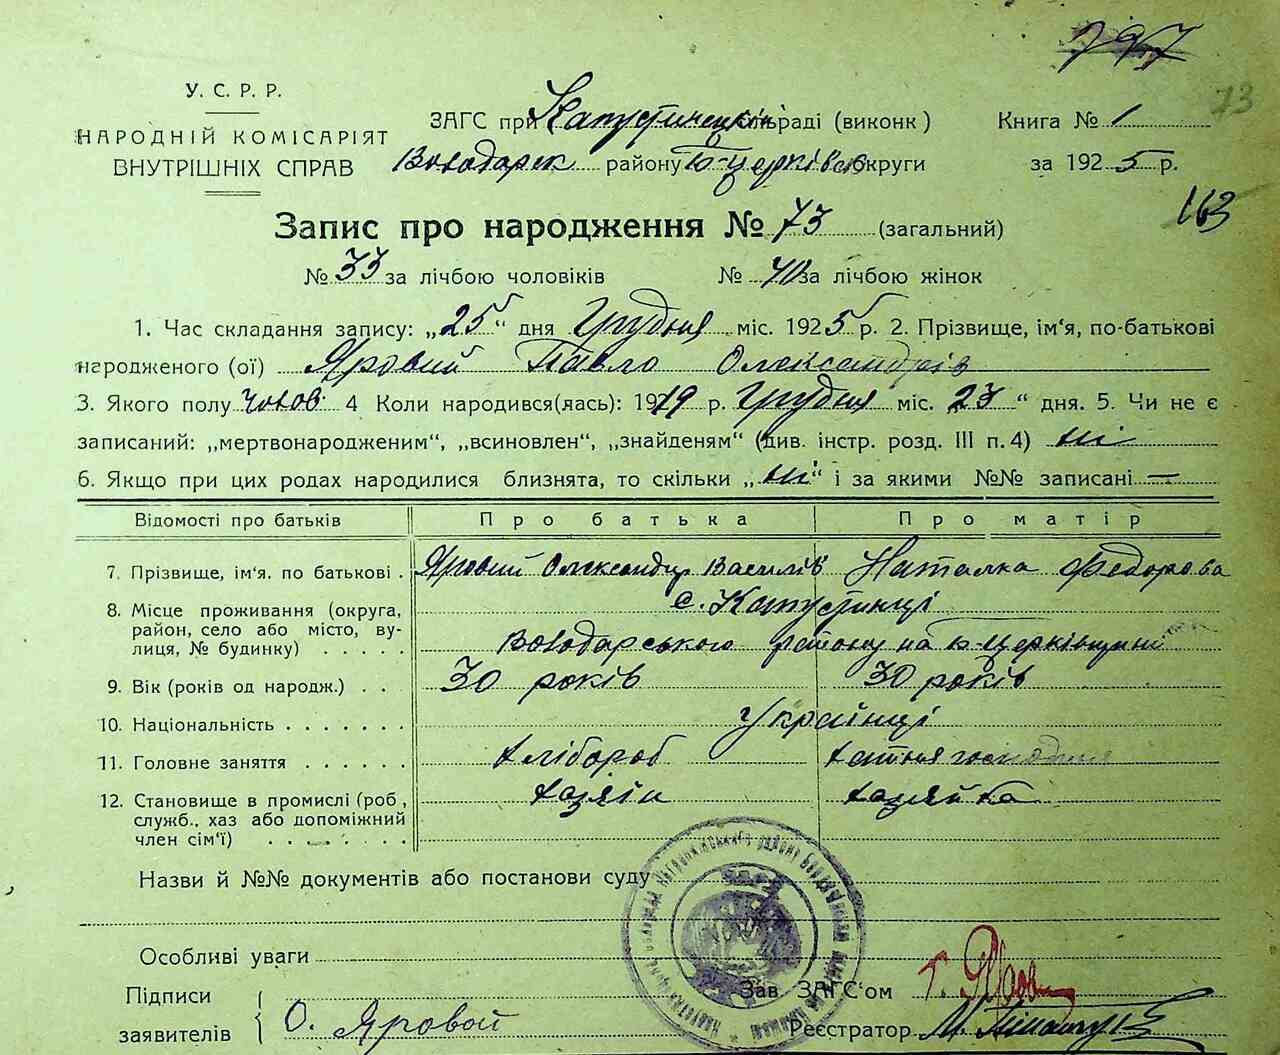 797
73
У. С. Р. Р.
НАРОДНІЙ КОМІСАРІЯТ
ВНУТРІШНІХ СПРАВ
ЗАГС при Капустинецькій сільраді (виконк) Книга № 1
Володарск району Б-Церківськ округи за 1925 р.
163
Запис про народження № 73 (загальний)
№ 33 за лічбою чоловіків № 40 за лічбою жінок
1. Час складання запису: „25" дня Грудня міс. 1925 р. 2. Прізвище, ім'я, по-батькові
народженого (ої) Яровий Павло Олександрів
3. Якого полу чолов. 4 Коли народився(лась): 1919 р. Грудня міс. 23 " дня. 5. Чи не є
записаний: „мертвонародженим", „всиновлен", „знайденям" (див. інстр. розд. III п. 4) ні
6. Якщо при цих родах народилися близнята, то скільки „ні" і за якими №№ записані —
Відомості про батьків Про батька Про матір
7. Прізвище, ім'я. по батькові . Яровий Олександр Василів Наталка Федорова
8. Місце проживання (округа, с. Капустинці
район, село або місто, ву-
лиця, № будинку) . . . . . Володарського району на Б-Церківщині
9. Вік (років од народж.) . . 30 років 30 років
10. Національність . . . . . . . Українці
11. Головне заняття . . . . . . хлібороб хатня господиня
12. Становище в промислі (роб, хазяїн хазяйка
служб., хаз або допоміжний
член сім'ї) . . . . . . .
Назви й №№ документів або постанови суду
Особливі уваги
Підписи
заявителів О. Яровой
Зав. ЗАГС'ом
Реєстратор